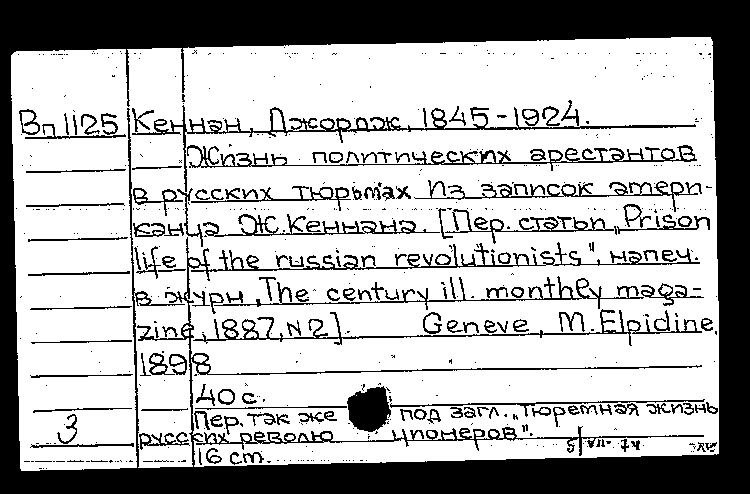 Вп1125 Кеннан, Джордж, 1845-1924.
Жизнь политических арестантов
в русских тюрьмах Из записок амери-
канца Ж. Кеннана. [Пер. статьи „Prison
life of the russian revolutionists", напеч.
в журн „The century ill. monthly maga-
zine, 1887, N2]. Geneve, M. Elpidine,
1898
40 с.
3 Пер. так же под загл. „Тюремная жизнь
русских револю ционеров".
16 cm.